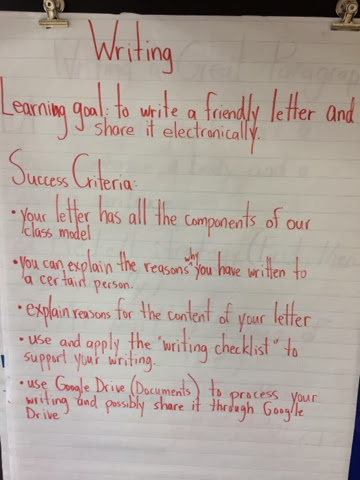 Writing
Learning goal: to write a friendly letter and
share it electronically.
Success Criteria:
• your letter has all the components of our
class model
• you can explain the reasons why you have written to
a certain person.
• explain reasons for the content of your letter
• use and apply the "writing checklist" to
support your writing.
• use Google Drive (Documents) to process your
writing and possibly share it through Google
Drive